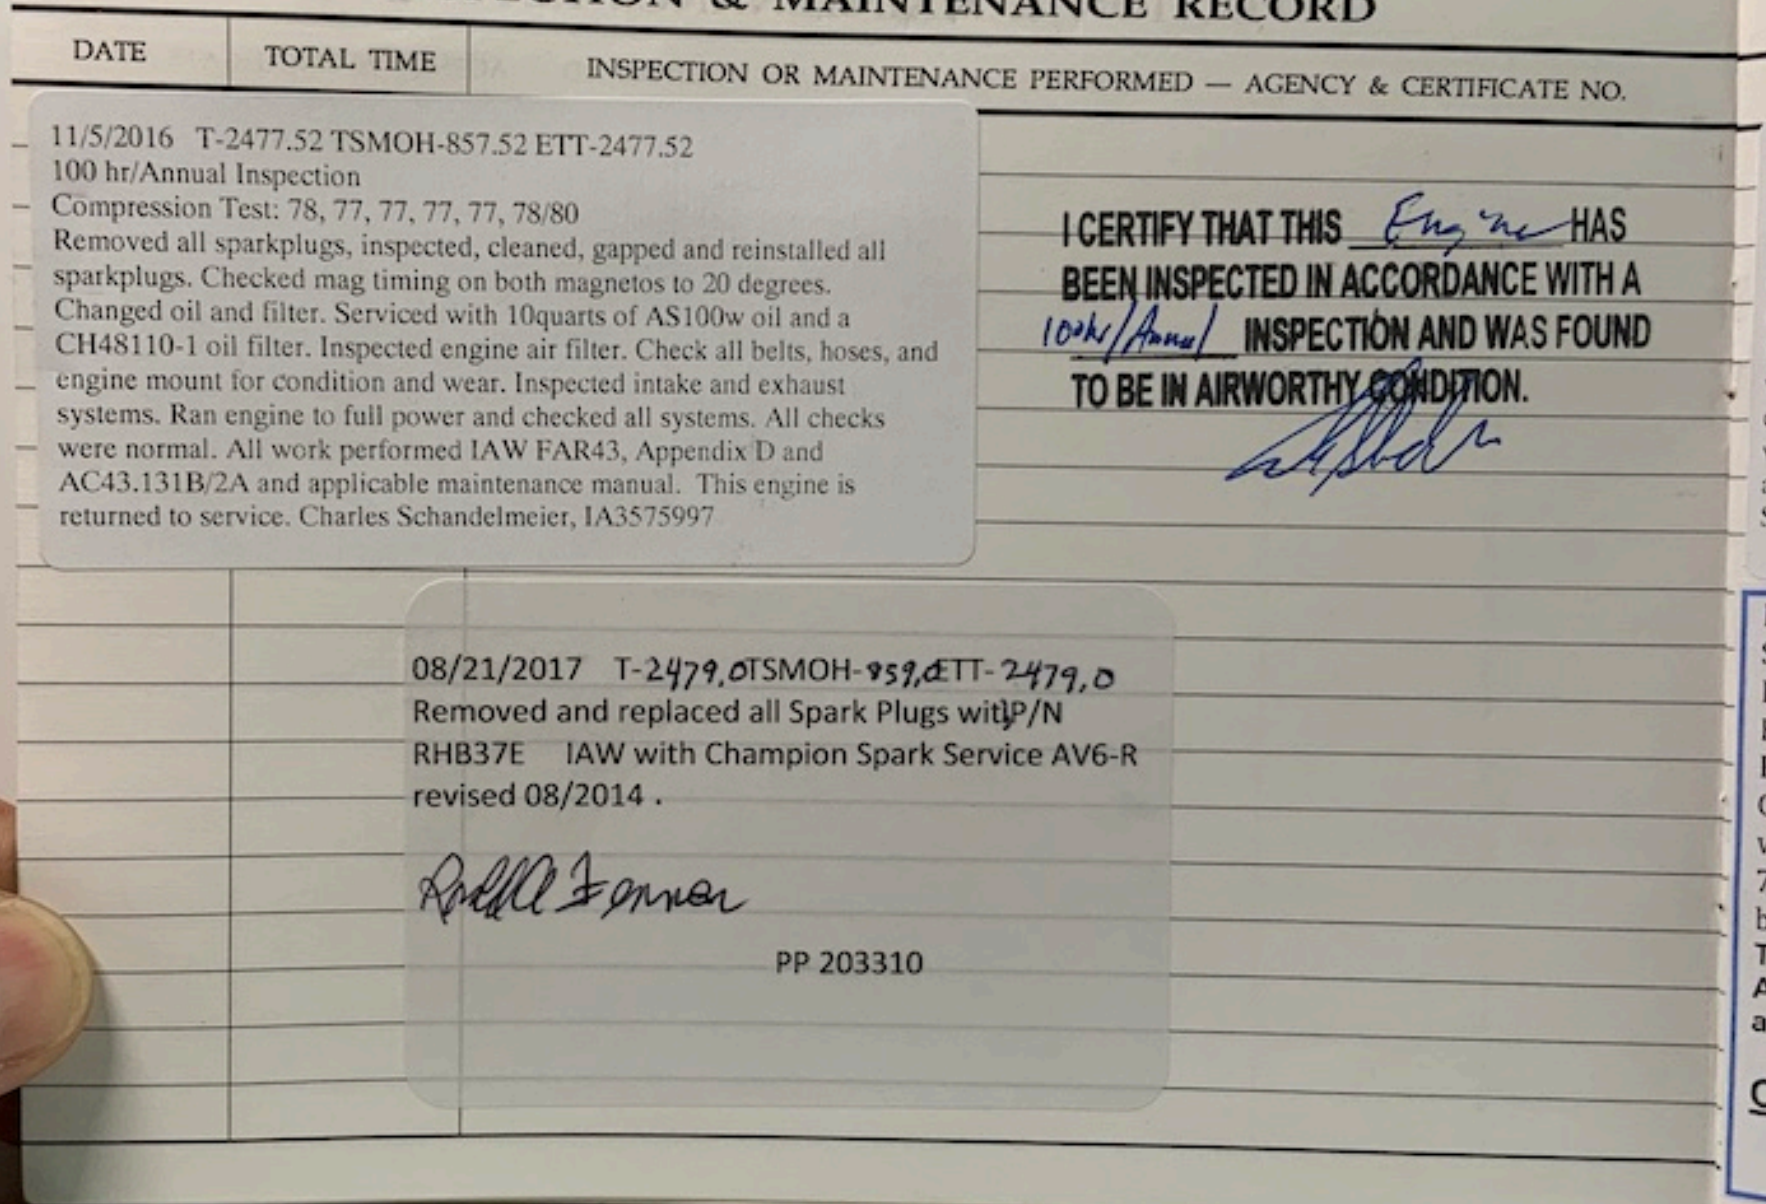 & MAINTENANCE RECORD
DATE
TOTAL TIME
INSPECTION OR MAINTENANCE PERFORMED — AGENCY & CERTIFICATE NO.
11/5/2016 T-2477.52 TSMOH-857.52 ETT-2477.52
100 hr/Annual Inspection
Compression Test: 78, 77, 77, 77, 77, 78/80
Removed all sparkplugs, inspected, cleaned, gapped and reinstalled all
sparkplugs. Checked mag timing on both magnetos to 20 degrees.
Changed oil and filter. Serviced with 10quarts of AS100w oil and a
CH48110-1 oil filter. Inspected engine air filter. Check all belts, hoses, and
engine mount for condition and wear. Inspected intake and exhaust
systems. Ran engine to full power and checked all systems. All checks
were normal. All work performed IAW FAR43, Appendix D and
AC43.131B/2A and applicable maintenance manual. This engine is
returned to service. Charles Schandelmeier, IA3575997
I CERTIFY THAT THIS Engine HAS
BEEN INSPECTED IN ACCORDANCE WITH A
100hr/Annual INSPECTION AND WAS FOUND
TO BE IN AIRWORTHY CONDITION.
08/21/2017 T-2479.0TSMOH-859.0ETT-2479.0
Removed and replaced all Spark Plugs with P/N
RHB37E IAW with Champion Spark Service AV6-R
revised 08/2014 .
PP 203310